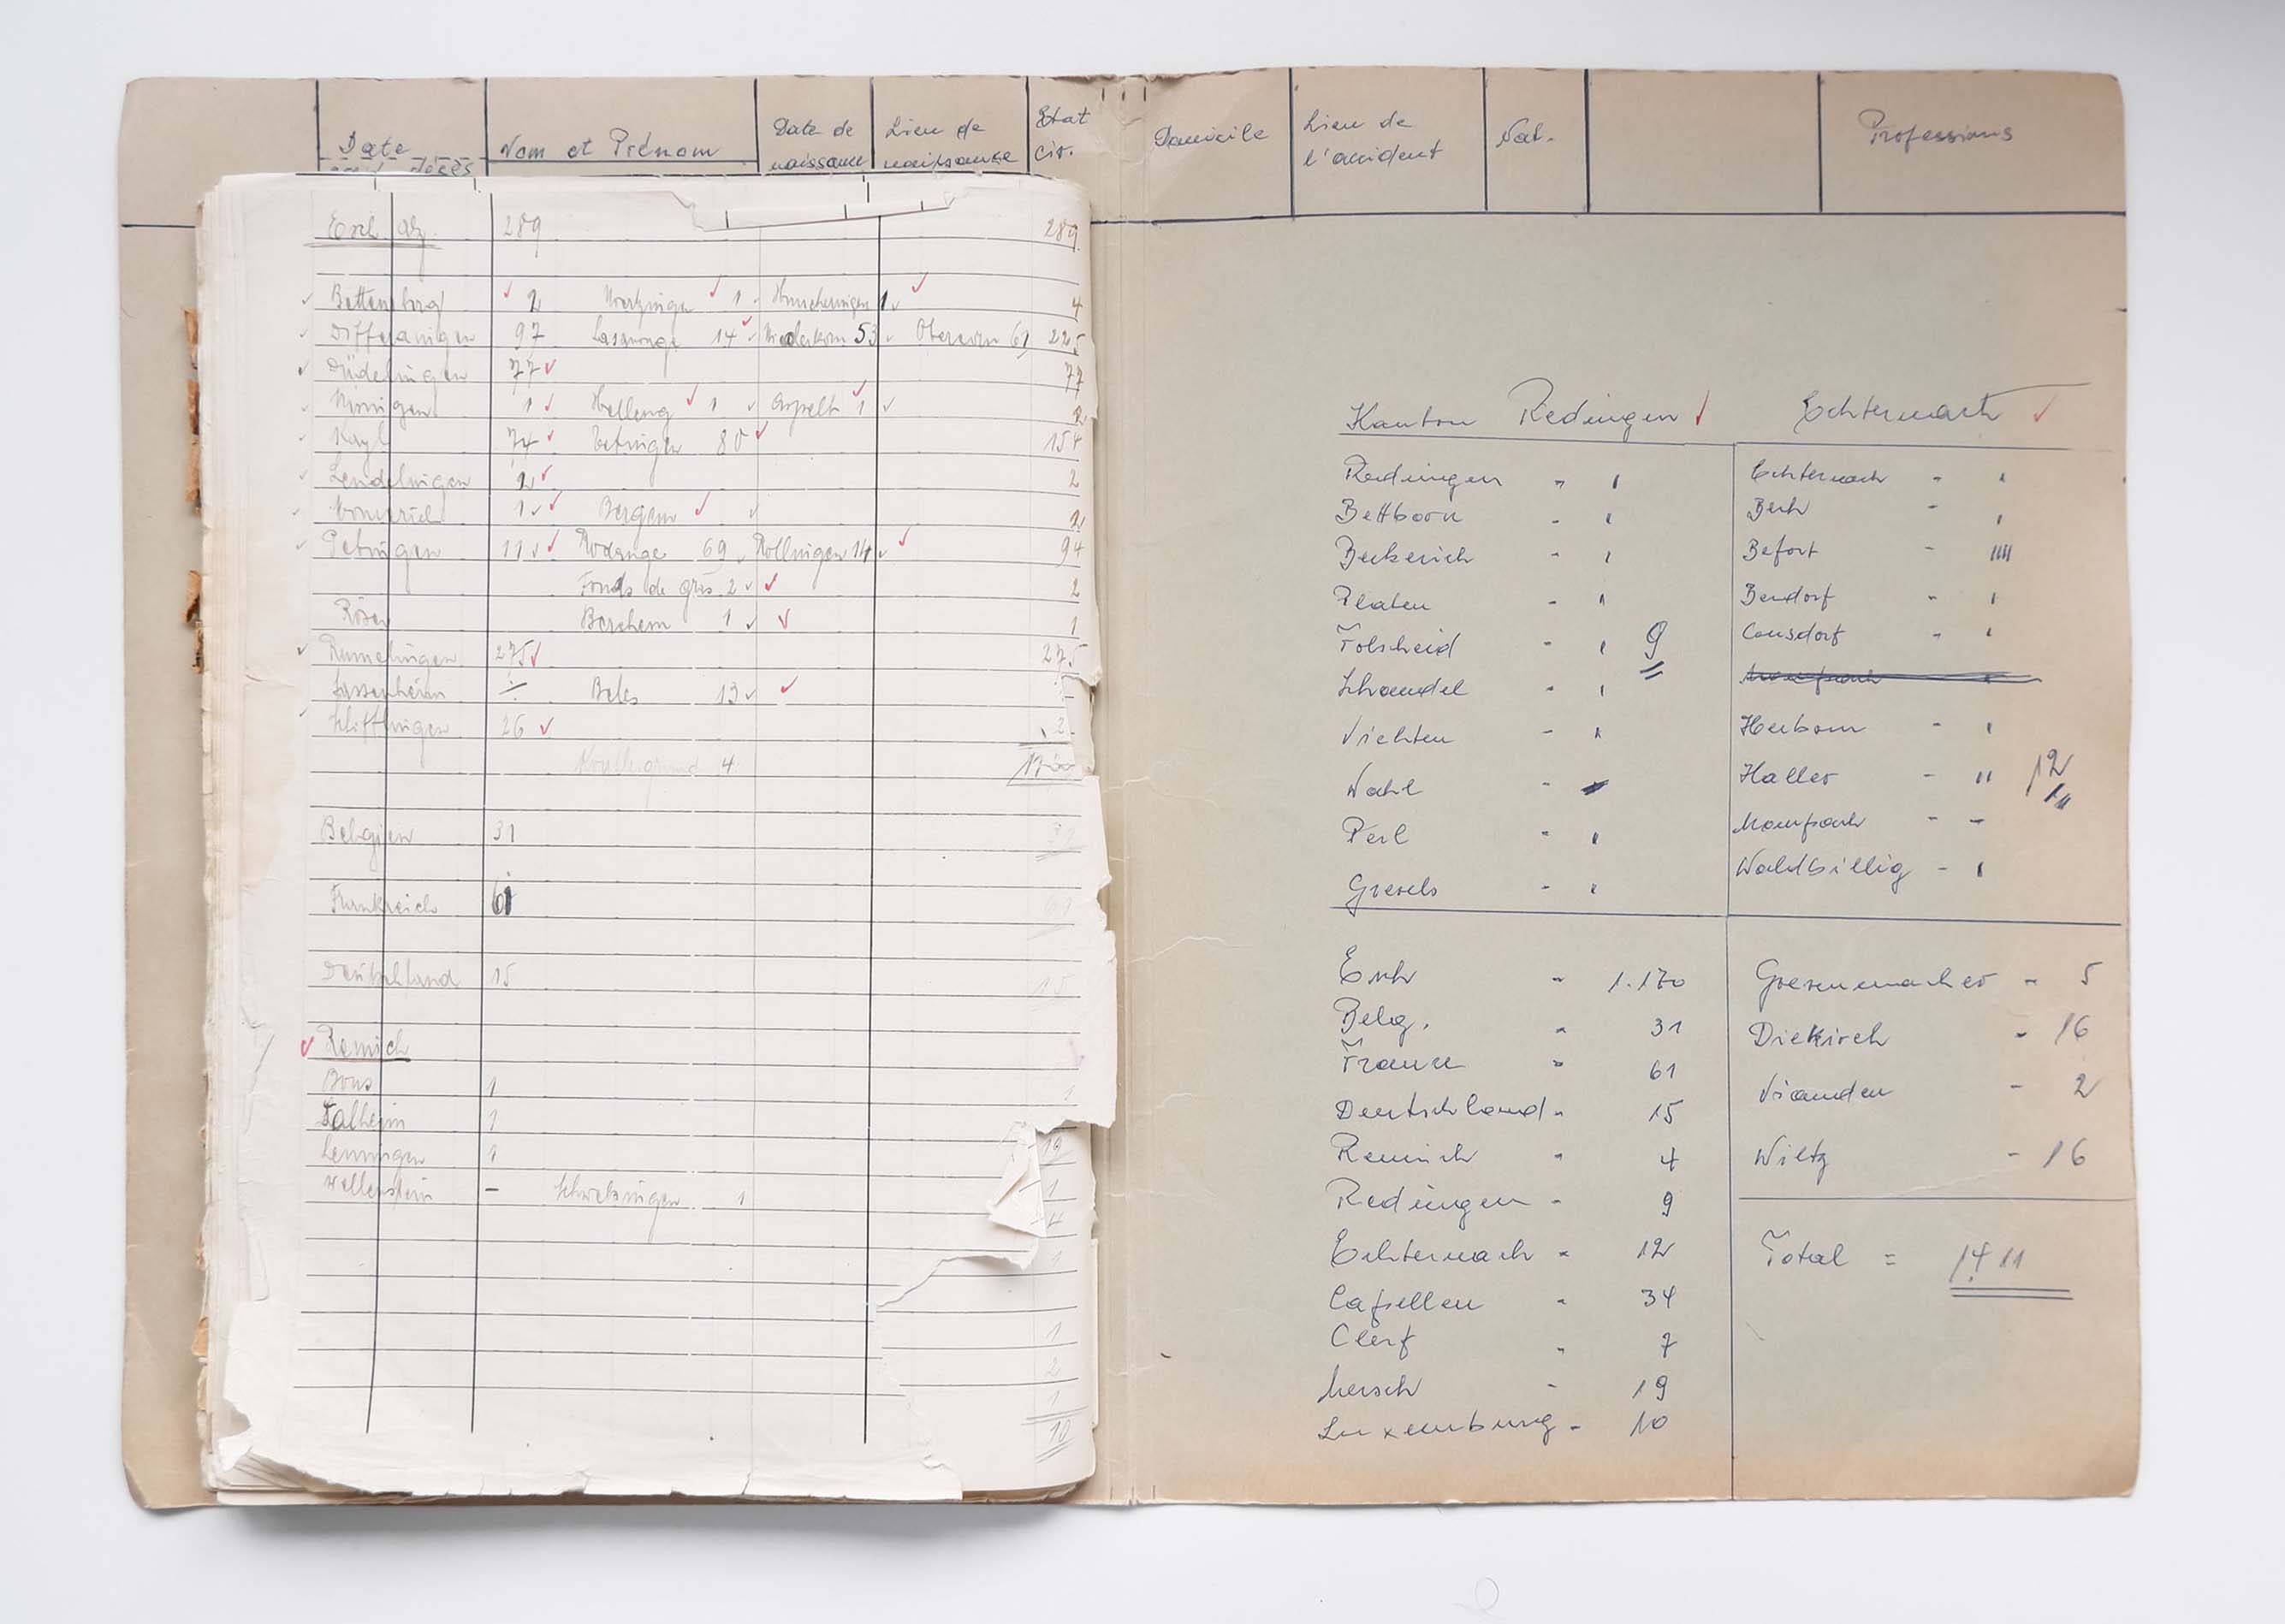 Date
Nom et Prénom
Date de
naissance
Lieu de
naissance
Etat
civ.
Domicile
Lieu de
l'accident
Nat.
Professions
Esch Alz. 289 289
Bettemborg 2 1 Huncheringen 1 4
Differdingen 97 Lasauvage 14 Niederkorn 53 Oberkorn 61 225
Düdelingen 77 77
1 Hellang 1 Aspelt 1
Kayl 74 Tetingen 80 154
Leudelingen 2 2
1 Bergem 2
Petingen 11 Rodange 69 Rollingen 14 94
Fonds de gras 2 2
Röser Berchem 1 1
Rümelingen 275 275
Sassenheim Beles 13
Schifflingen 26
4
Belgien 31
Frankreich 61
Deutschland 15 15
Remich
Bous 1 1
Dalheim 1
Lenningen 1
Wellenstein – Schwebsingen 1 1
4
1
1
2
1
10
Kanton Redingen
Redingen - ı
Bettborn - ı
Beckerich - ı
Platen - ı
Folscheid - ı 9
Schandel - ı
Vichten - ı
Wahl -
Perl - ı
Grevels - ı
Echternach
Echternach - ı
Berh - ı
Befort - ıııı
Bendorf - ı
Consdorf - ı
Herborn - ı
Haller - ıı 12
Mompach - -
Waldbillig - ı
Esch - 1.170
Belg. - 31
France - 61
Deutschland - 15
Remich - 4
Redingen - 9
Echternach - 12
Capellen - 34
Clerf - 7
Mersch - 19
Luxemburg - 10
Grevenmacher - 5
Diekirch - 16
Vianden - 2
Wiltz - 16
Total = 1411